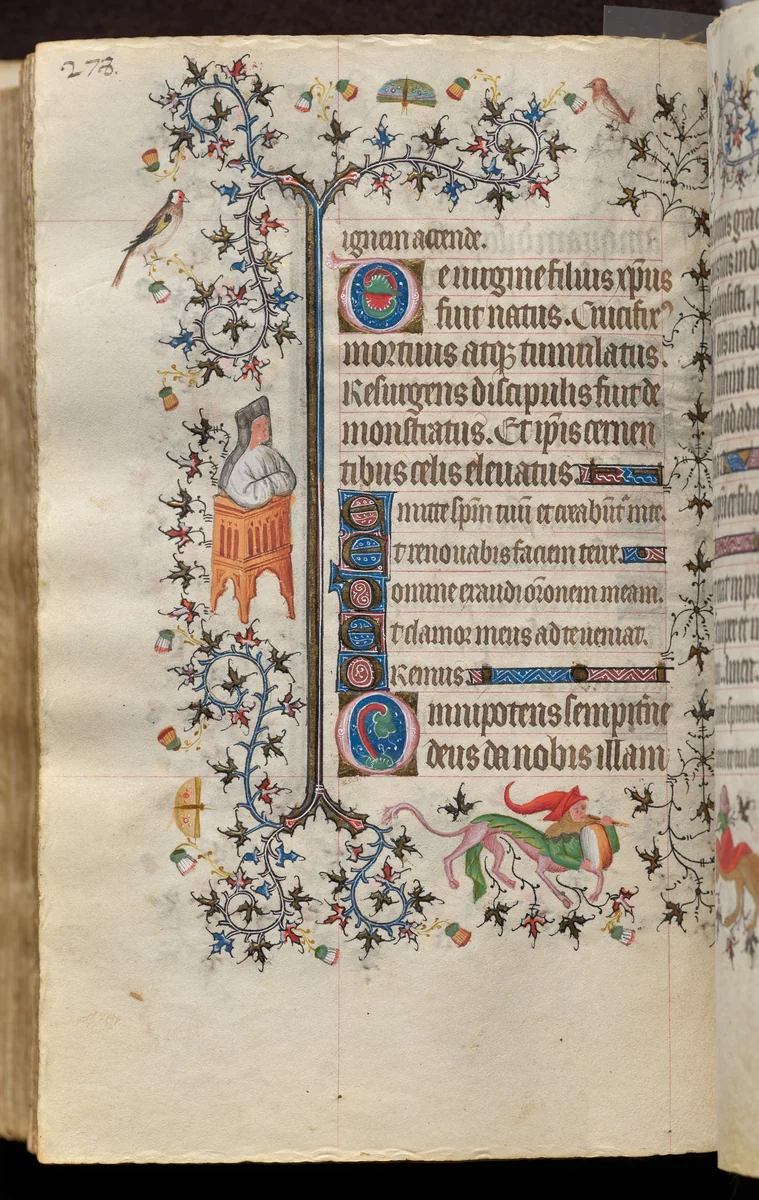 273.
ignem accende.
De uirgine filius xp̄us
fuit natus. Crucifixꝰ
mortuus atqꝫ tumulatus.
Resurgens discipulis fuit de
monstratus. Et ip̄is cernen
tibus celis eleuatus.
Emitte sp̄m tuū et creabūtʳ inte.
Et renouabis faciem terre.
Domine exaudi or̄onem meam.
Et clamor meus ad te ueniat.
Oremus.
Omnipotens sempit̄ne
deus da nobis illam